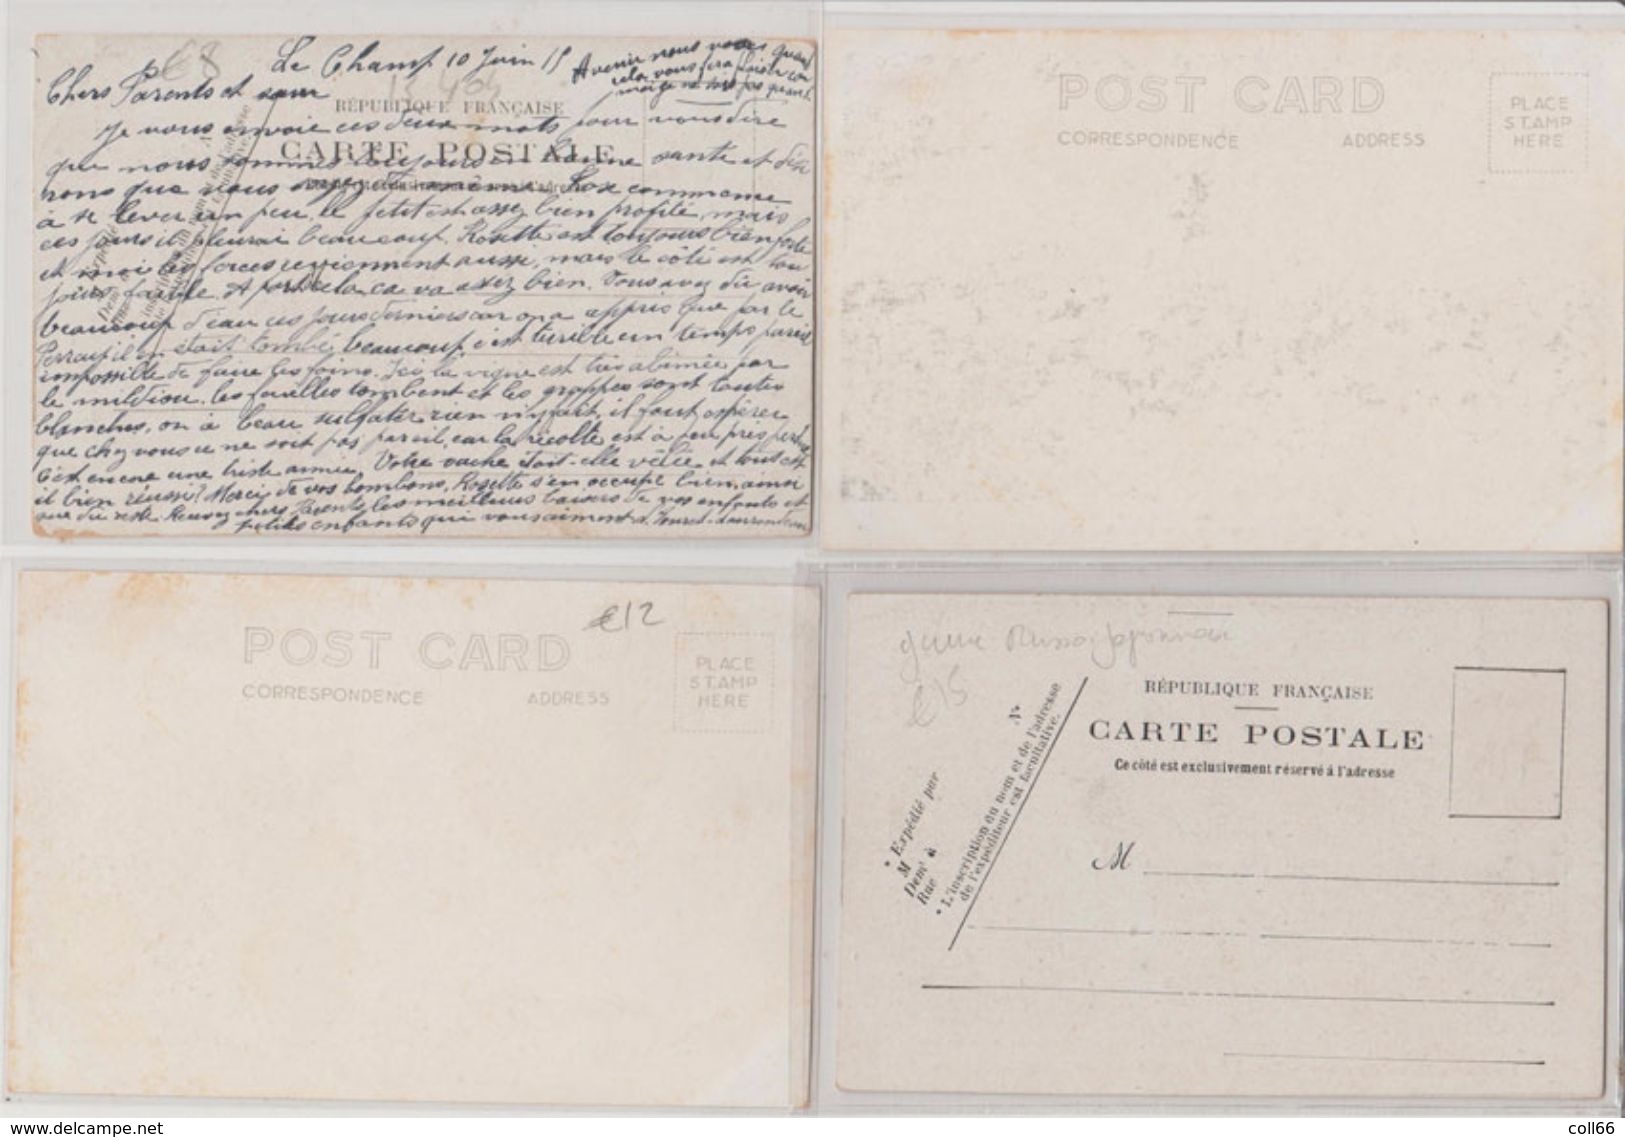 €8
Le Champ 10 Juin 15
Avenir nous
cela vous fera
Chers Parents et sœur
RÉPUBLIQUE FRANÇAISE
Je vous envoie ces deux mots pour vous dire
CARTE POSTALE
que nous sommes toujours en bonne santé et dési
rons que vous soyez de même. commence
à se lever un peu, le petit est assez bien profité, mais
ces jours il pleurai beaucoup. Rosette est toujours bien forte
et moi les forces reviennent aussi, mais le côté est tou
jours faible. A part cela, ça va assez bien. Vous avez dû avoir
beaucoup d'eau ces jours derniers car on a appris que par le
il en était tombé beaucoup, c'est terrible un temps pareil
impossible de faire les foins. Ici la vigne est très abimée par
le mildiou, les feuilles tombent et les grappes sont toutes
blanches, on à beau sulfater rien n'y fait, il faut espérer
que chez vous ce ne soit pas pareil, car la récolte est à peu près perdue
C'est encore une triste année. Votre vache était-elle vêlée et tout est
il bien réussi? Merci de vos bombons, Rosette s'en occupe bien, ainsi
que du reste. Recevez chers Parents les meilleurs baisers de vos enfants et
petits enfants qui vous aiment
POST CARD
CORRESPONDENCE
ADDRESS
PLACE
STAMP
HERE
€12
POST CARD
CORRESPONDENCE
ADDRESS
PLACE
STAMP
HERE
guerre Russo-japonaise
€15
RÉPUBLIQUE FRANÇAISE
CARTE POSTALE
Ce côté est exclusivement réservé à l'adresse
N°
* Expédié par
M
Dem' à
Rue
* L'inscription du nom et de l'adresse
de l'expéditeur est facultative.
M
www.delcampe.net
coll66